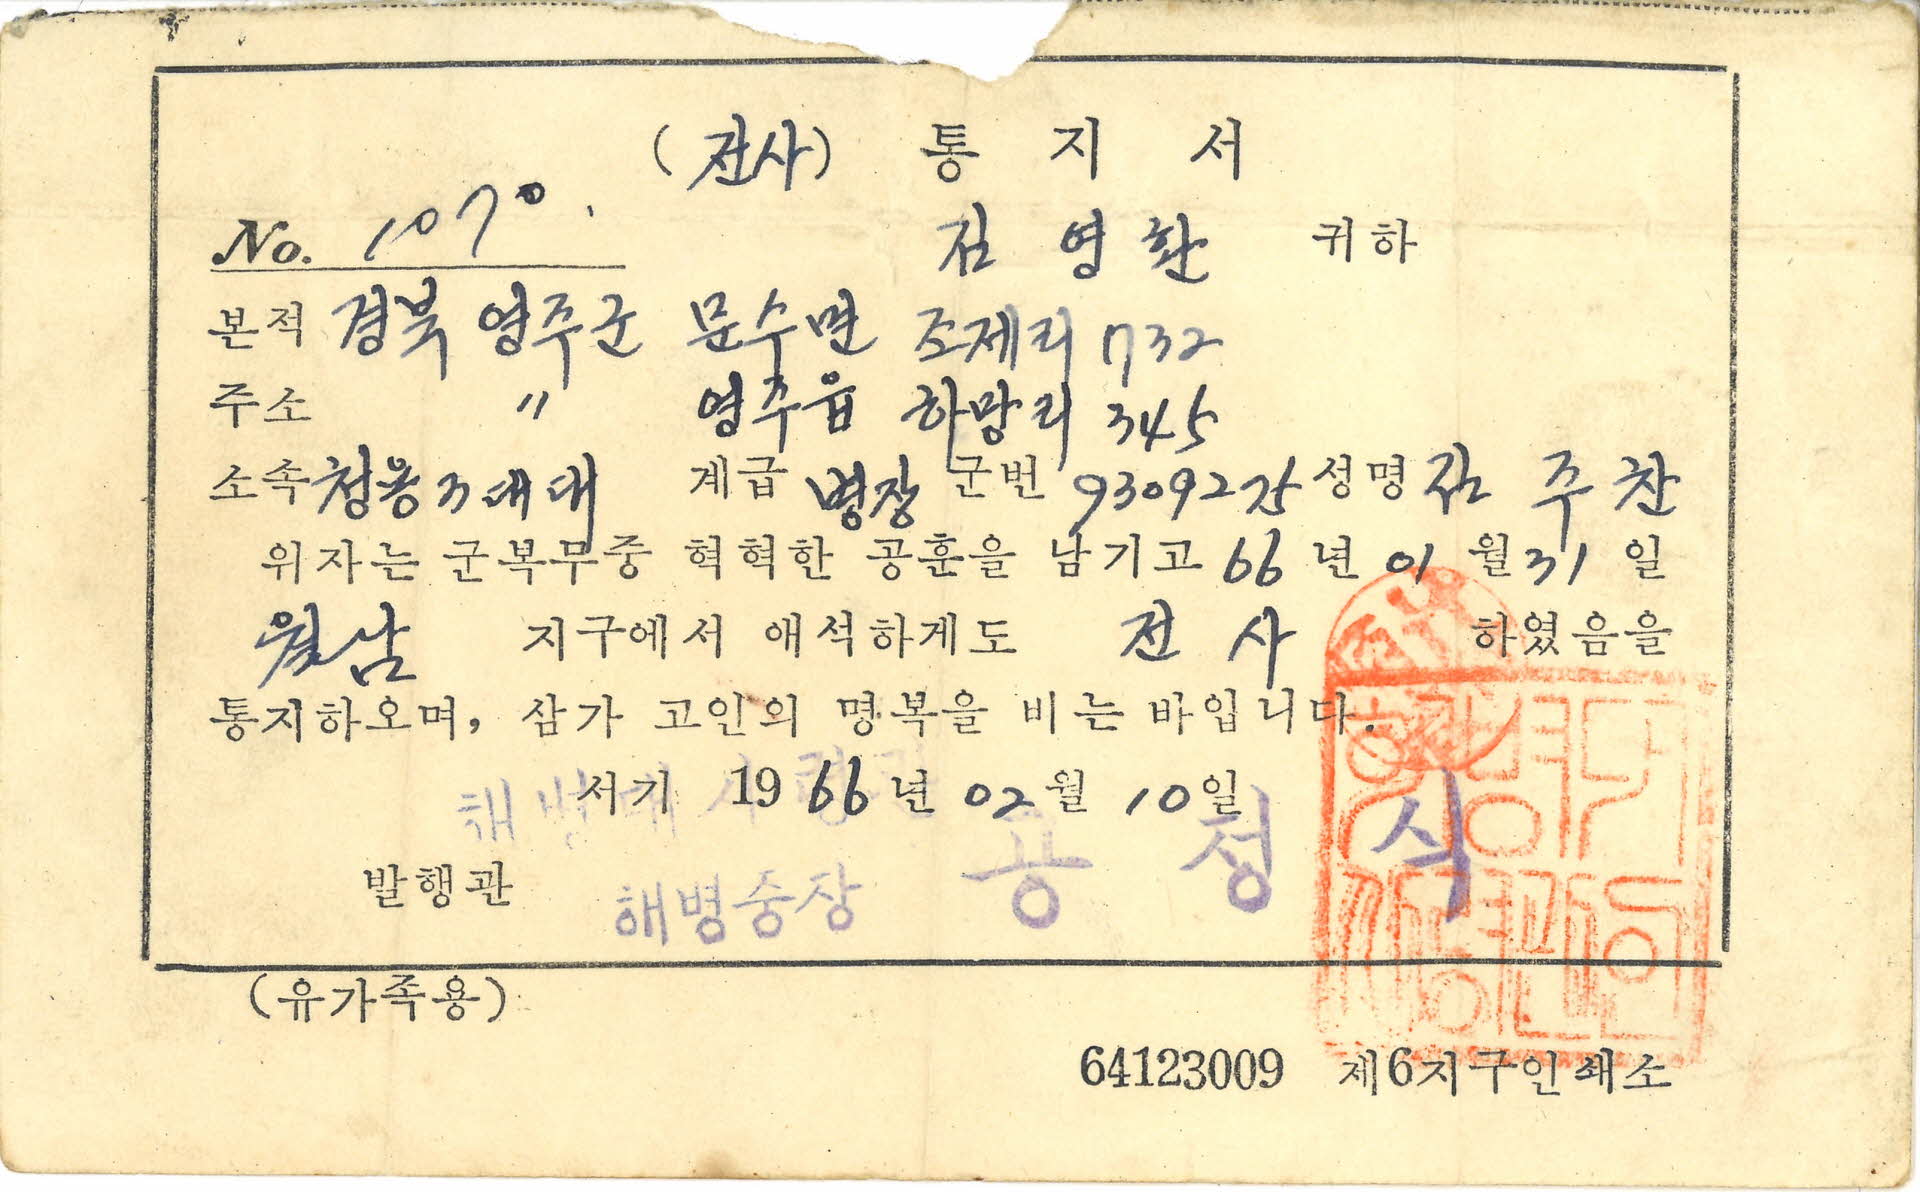 (전사) 통지서
No. 1070.
김영환 귀하
본적 경북 영주군 문수면 조제리 732
주소 〃 영주읍 하망리 345
소속 청용3대대 계급 병장 군번 9309225 성명 김주찬
위자는 군복무중 혁혁한 공훈을 남기고 66년 01월 31일
월남 지구에서 애석하게도 전사 하였음을
통지하오며, 삼가 고인의 명복을 비는 바입니다.
서기 1966년 02월 10일
해병대사령관
발행관 해병중장 공정식
(유가족용)
64123009 제6지구인쇄소